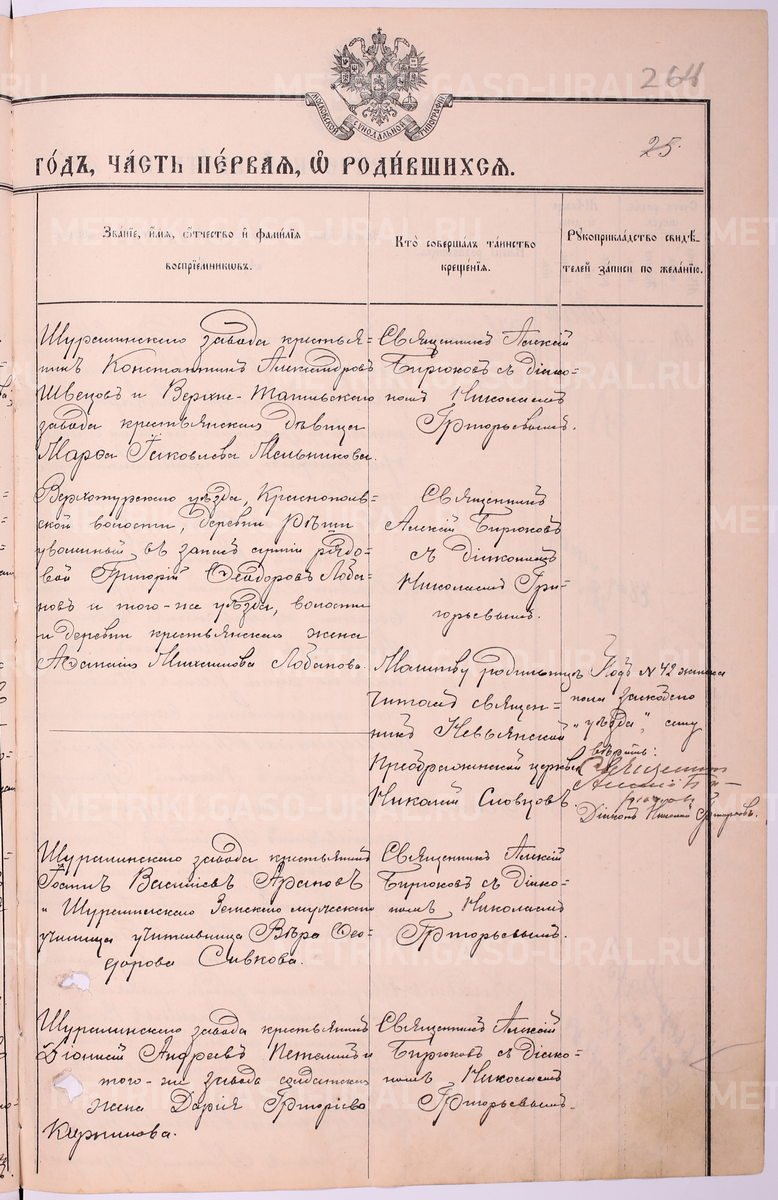 264
МОСКОВСКОЙ СѴНОДАЛЬНОЙ ТИПОГРАФІИ
25.
ГОДЪ, ЧАСТЬ ПЕРВАЯ, Ѡ РОДИВШИХСЯ.
Званіе, имя, отчество и фамилія
воспріемниковъ.
Кто совершалъ таинство
крещенія.
Рукоприкладство свидѣ-
телей записи по желанію.
Шуралинскаго завода крестья-
нинъ Константинъ Александровъ
Швецовъ и Верхне-Тагильскаго
завода крестьянская дѣвица
Марѳа Іаковлева Мельникова.
Священникъ Алексій
Бирюковъ съ діако-
номъ Николаемъ
Григорьевымъ.
Верхотурскаго уѣзда, Краснополь-
ской волости, деревни Рѣши
уволенный въ запасъ арміи рядо-
вой Григорій Ѳеодоровъ Лоба-
новъ и того-же уѣзда, волости
и деревни крестьянская жена
Аѳанасія Михаилова Лобанова.
Священникъ
Алексій Бирюковъ
съ діакономъ
Николаемъ Гри-
горьевымъ.
Молитву родильницѣ
читалъ священ-
никъ Невьянской
Преображенской церкви
Николай Словцовъ.
Подъ N 42
пола
"уѣзда", сему
вѣрить:
Священникъ
Алексій Би-
рюковъ
Діаконъ Николай Григорьевъ.
Шуралинскаго завода крестьянинъ
Іоаннъ Василіевъ Араповъ
и Шуралинскаго Земскаго мужскаго
училища учительница Вѣра Ѳео-
дорова Сивкова.
Священникъ Алексій
Бирюковъ съ діако-
номъ Николаемъ
Григорьевымъ.
Шуралинскаго завода крестьянинъ
Діонисій Андреевъ и
того-же завода солдатская
жена Дарія Григоріева
Священникъ Алексій
Бирюковъ съ діако-
номъ Николаемъ
Григорьевымъ.
METRIKI.GASO-URAL.RU